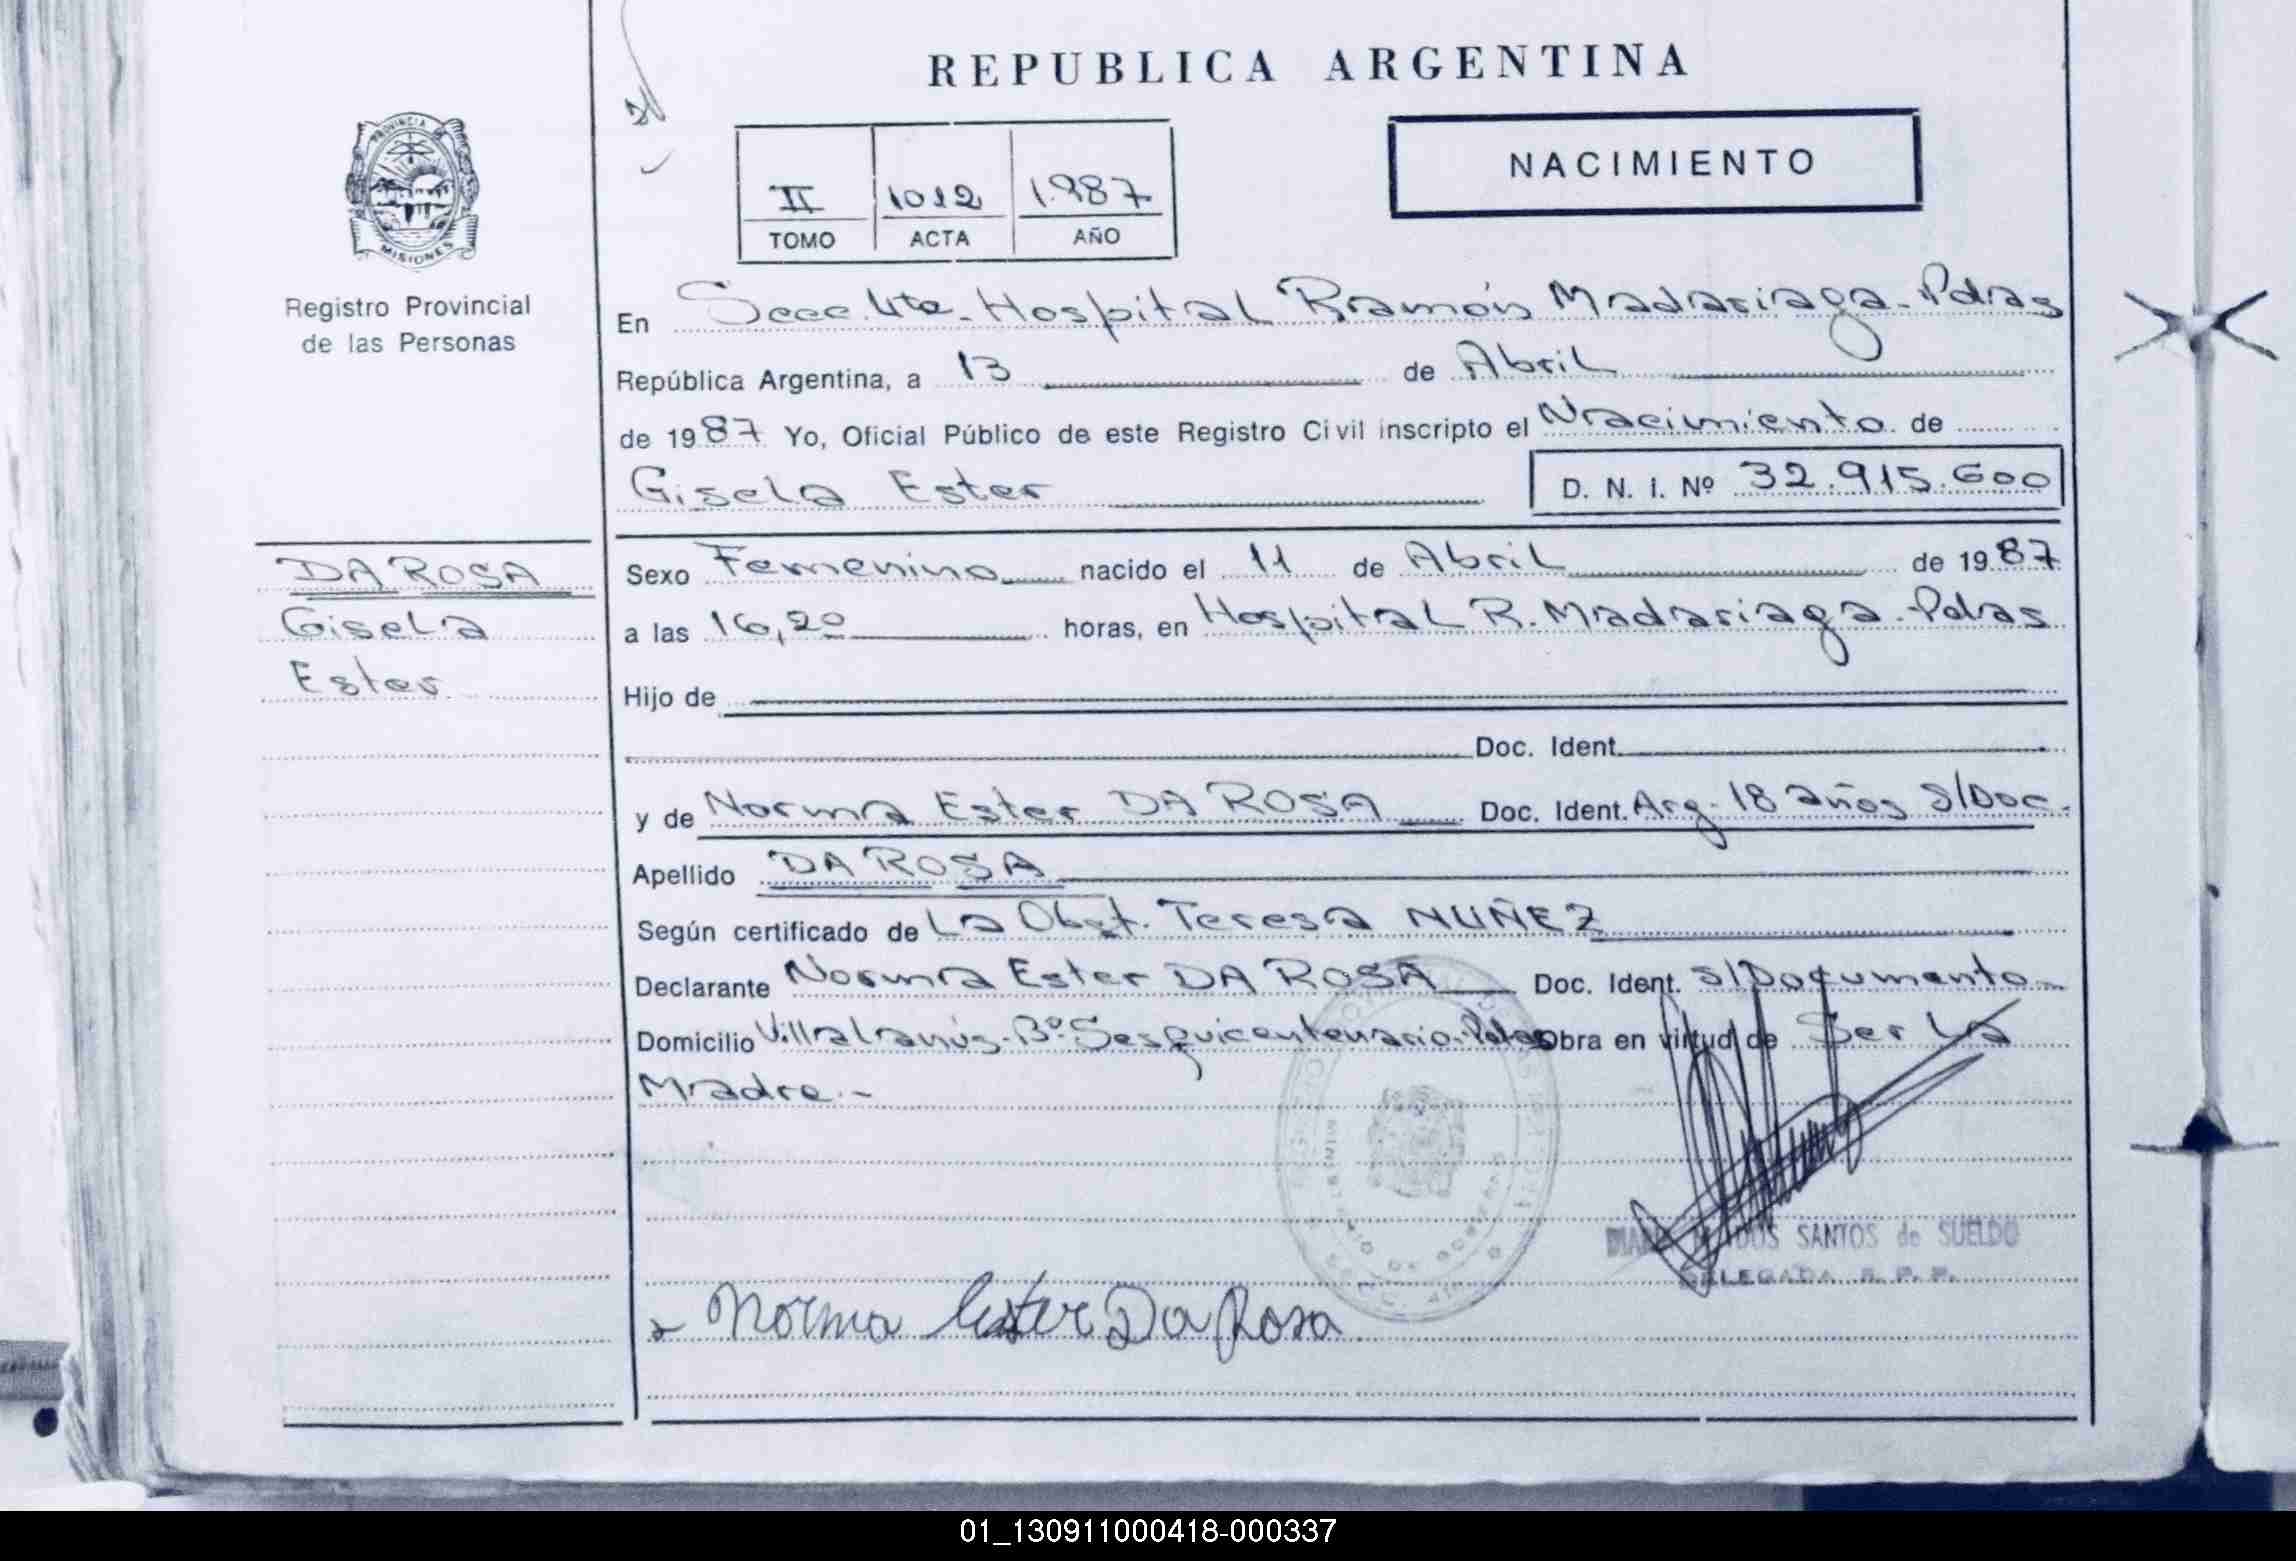 REPUBLICA ARGENTINA
NACIMIENTO
II 1012 1.987
TOMO ACTA AÑO
PROVINCIA
MISIONES
Registro Provincial
de las Personas
En Secc. 4ta. Hospital Ramón Madariaga - Pdas
República Argentina, a 13 de Abril
de 1987 Yo, Oficial Público de este Registro Civil inscripto el Nacimiento de
Gisela Ester D. N. I. Nº 32.915.600
DA ROSA
Gisela
Ester
Sexo Femenino nacido el 11 de Abril de 1987
a las 16,20 horas, en Hospital R. Madariaga - Pdas
Hijo de
Doc. Ident.
y de Norma Ester DA ROSA Doc. Ident. Arg. 18 años S/Doc.
Apellido DA ROSA
Según certificado de La Obst. Teresa NUÑEZ
Declarante Norma Ester DA ROSA Doc. Ident. S/Documento
Domicilio Villa Lanús - Bº Sesquicentenario - Pdas Obra en virtud de Ser La
Madre.-
DOS SANTOS de SUELDO
DELEGADA R. P. P.
Norma Ester Da Rosa
01_130911000418-000337